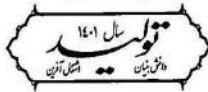 سال ۱۴۰۱
تولید
دانش بنیان اشتغال آفرین